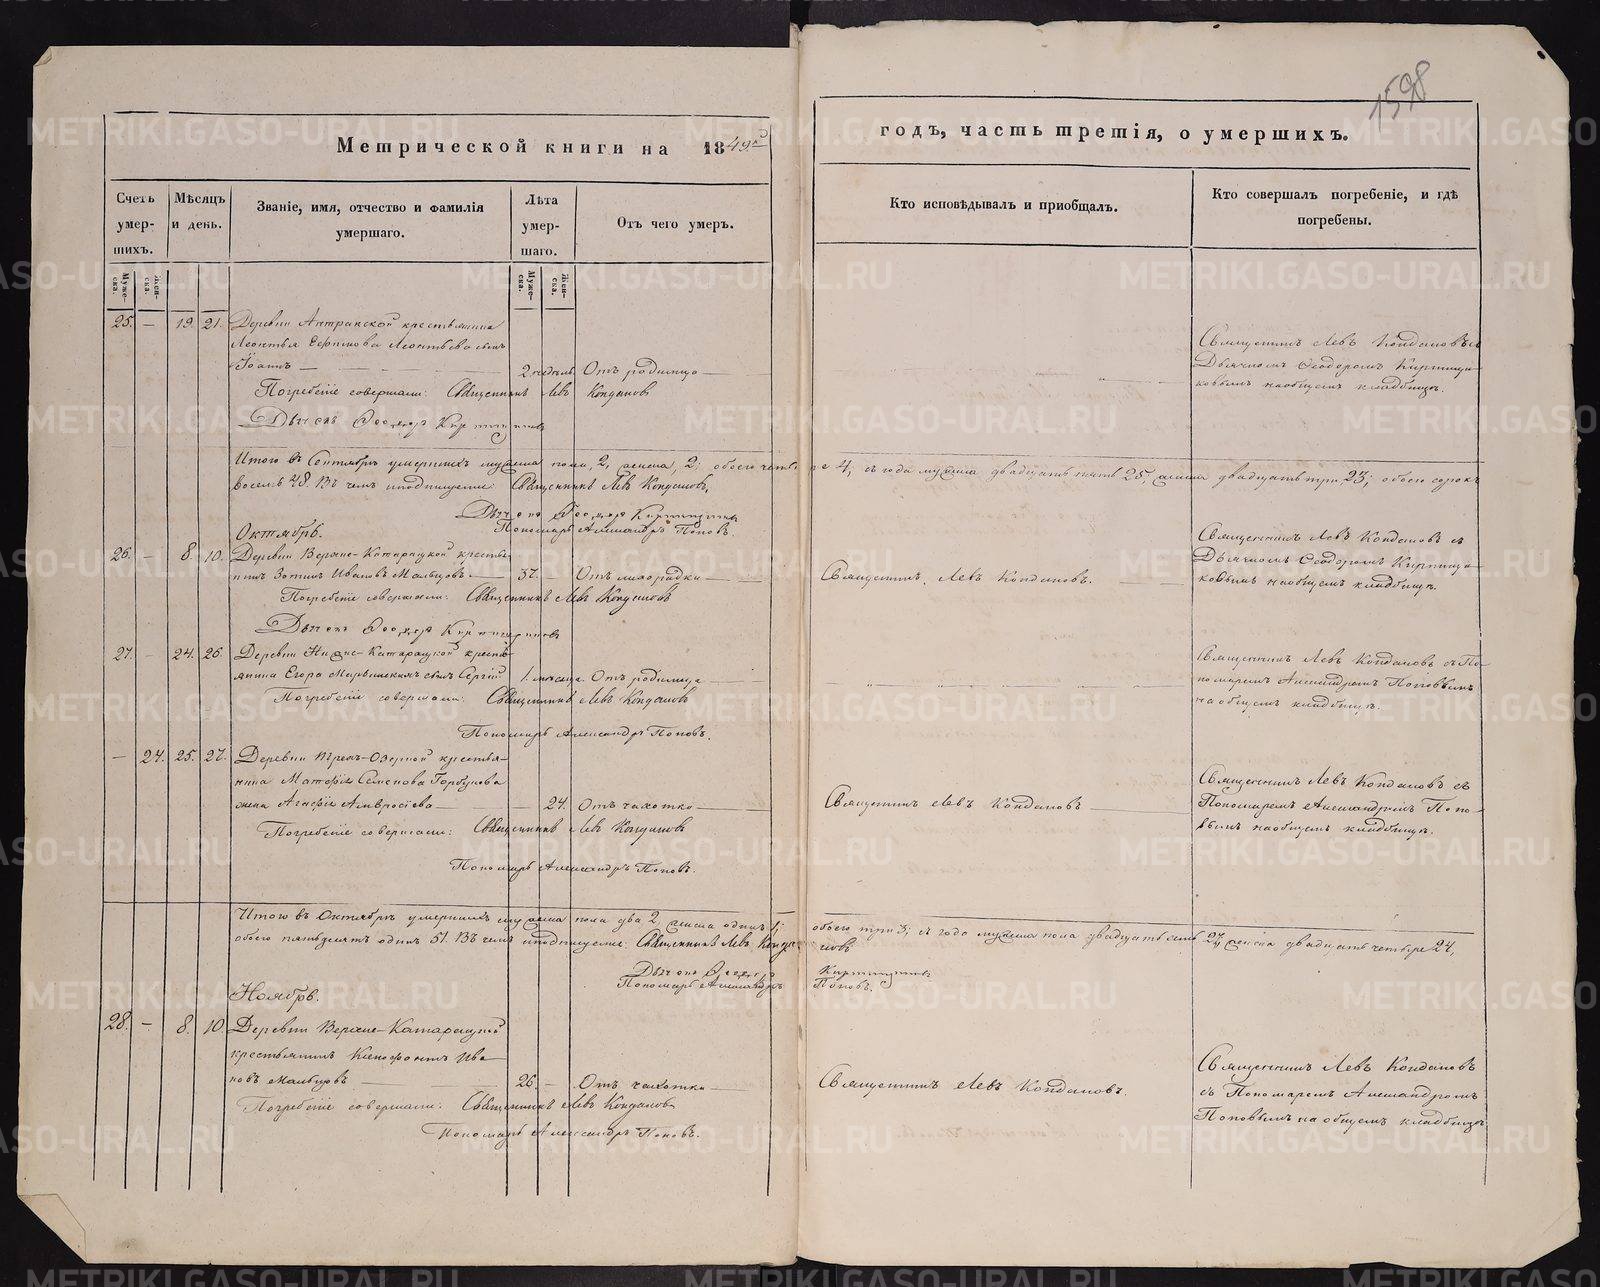 1598
Метрической книги на 1849й
годъ, часть третія, о умершихъ.
Счетъ умер-шихъ.
Мѣсяцъ и день.
Званіе, имя, отчество и фамилія умершаго.
Лѣта умер-шаго.
Отъ чего умеръ.
Кто исповѣдывалъ и пріобщалъ.
Кто совершалъ погребеніе, и гдѣ погребены.
Муже-ска.
Жен-ска.
Муже-ска.
Жен-ска.
25. — 19. 21. Деревни крестьянина
Леонтьева сынъ
Іоаннъ — 2 недѣль Отъ родимца
Священникъ Левъ Кондаковъ съ
Дьячкомъ Ѳеодоромъ Кирпищи-
ковымъ на общемъ кладбищѣ.
Погребеніе совершали: Священникъ Левъ Кондаковъ
Дьячекъ Ѳеодоръ Кирпищиковъ
Итого въ Сентябрѣ умершихъ мужеска пола, 2, женска, 2; обоего четыре 4, съ года мужеска двадцать пять 25, женска двадцать три, 23; обоего сорокъ
восемь 48. Въ чемъ и подпишемся: Священникъ Левъ Кондаковъ,
Дьячекъ Ѳеодоръ Кирпищиковъ
Пономарь Александръ Поповъ.
Октябрь.
26. — 8. 10. Деревни Верхне-Катарацкой крестья-
нинъ Зотикъ Ивановъ Мальцовъ — 37. — Отъ лихорадки —
Священникъ Левъ Кондаковъ.
Священникъ Левъ Кондаковъ съ
Дьячкомъ Ѳеодоромъ Кирпищи-
ковымъ на общемъ кладбищѣ.
Погребеніе совершали: Священникъ Левъ Кондаковъ
Дьячекъ Ѳеодоръ Кирпищиковъ
27. — 24. 26. Деревни Нижне-Катарацкой кресть-
янина Егора сынъ Сергій 1. мѣсяца Отъ родимца
Священникъ Левъ Кондаковъ съ По-
номаремъ Александромъ Поповымъ
на общемъ кладбищѣ.
Погребеніе совершали: Священникъ Левъ Кондаковъ
Пономарь Александръ Поповъ.
— 24. 25. 27. Деревни крестья-
нина Матѳія Семенова Горбунова
жена Агафія Амвросіева — 24. Отъ чахотки —
Священникъ Левъ Кондаковъ
Священникъ Левъ Кондаковъ съ
Пономаремъ Александромъ Попо-
вымъ на общемъ кладбищѣ.
Погребеніе совершали: Священникъ Левъ Кондаковъ
Пономарь Александръ Поповъ.
Итого въ Октябрѣ умершихъ мужеска пола два 2 женска одинъ 1; обоего три 3; съ года мужеска пола двадцать семь 27, женска двадцать четыре 24,
обоего пятьдесятъ одинъ 51. Въ чемъ и подпишемся: Священникъ Левъ Кондаковъ
Дьячекъ Ѳеодоръ Кирпищиковъ
Пономарь Александръ Поповъ.
Ноябрь.
28. — 8. 10. Деревни Верхне-Катарацкой
крестьянинъ Ксенофонтъ Ива-
новъ Мальцовъ — 26. — Отъ чахотки —
Священникъ Левъ Кондаковъ.
Священникъ Левъ Кондаковъ
съ Пономаремъ Александромъ
Поповымъ на общемъ кладбищѣ
Погребеніе совершали: Священникъ Левъ Кондаковъ
Пономарь Александръ Поповъ.
METRIKI.GASO-URAL.RU